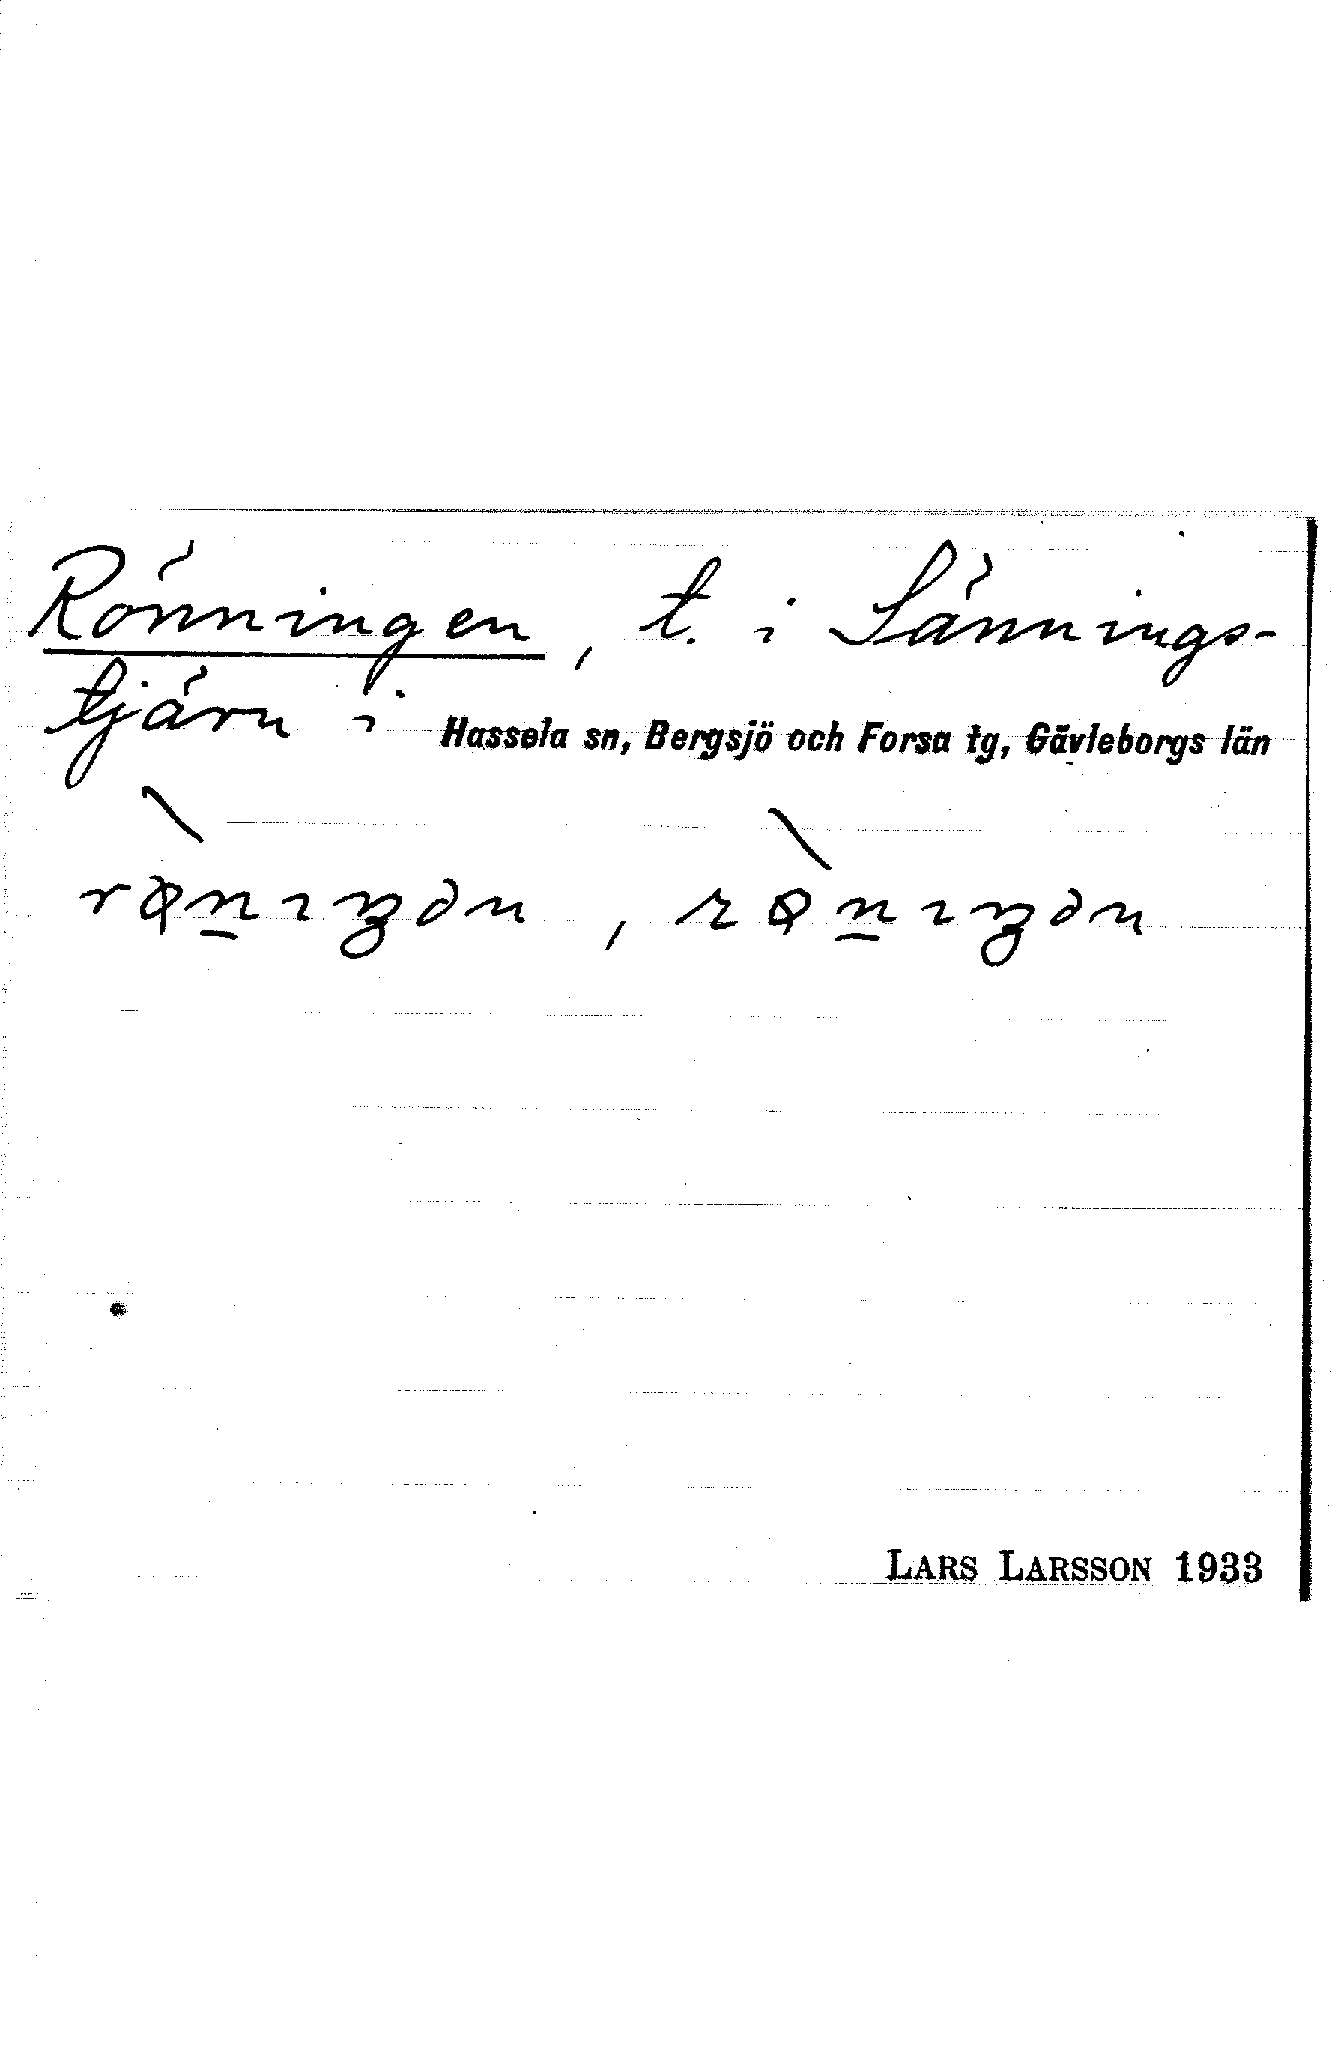 Rönningen, t. i Sännings-
tjärn i Hassela sn, Bergsjö och Forsa tg, Gävleborgs län
LARS LARSSON 1933